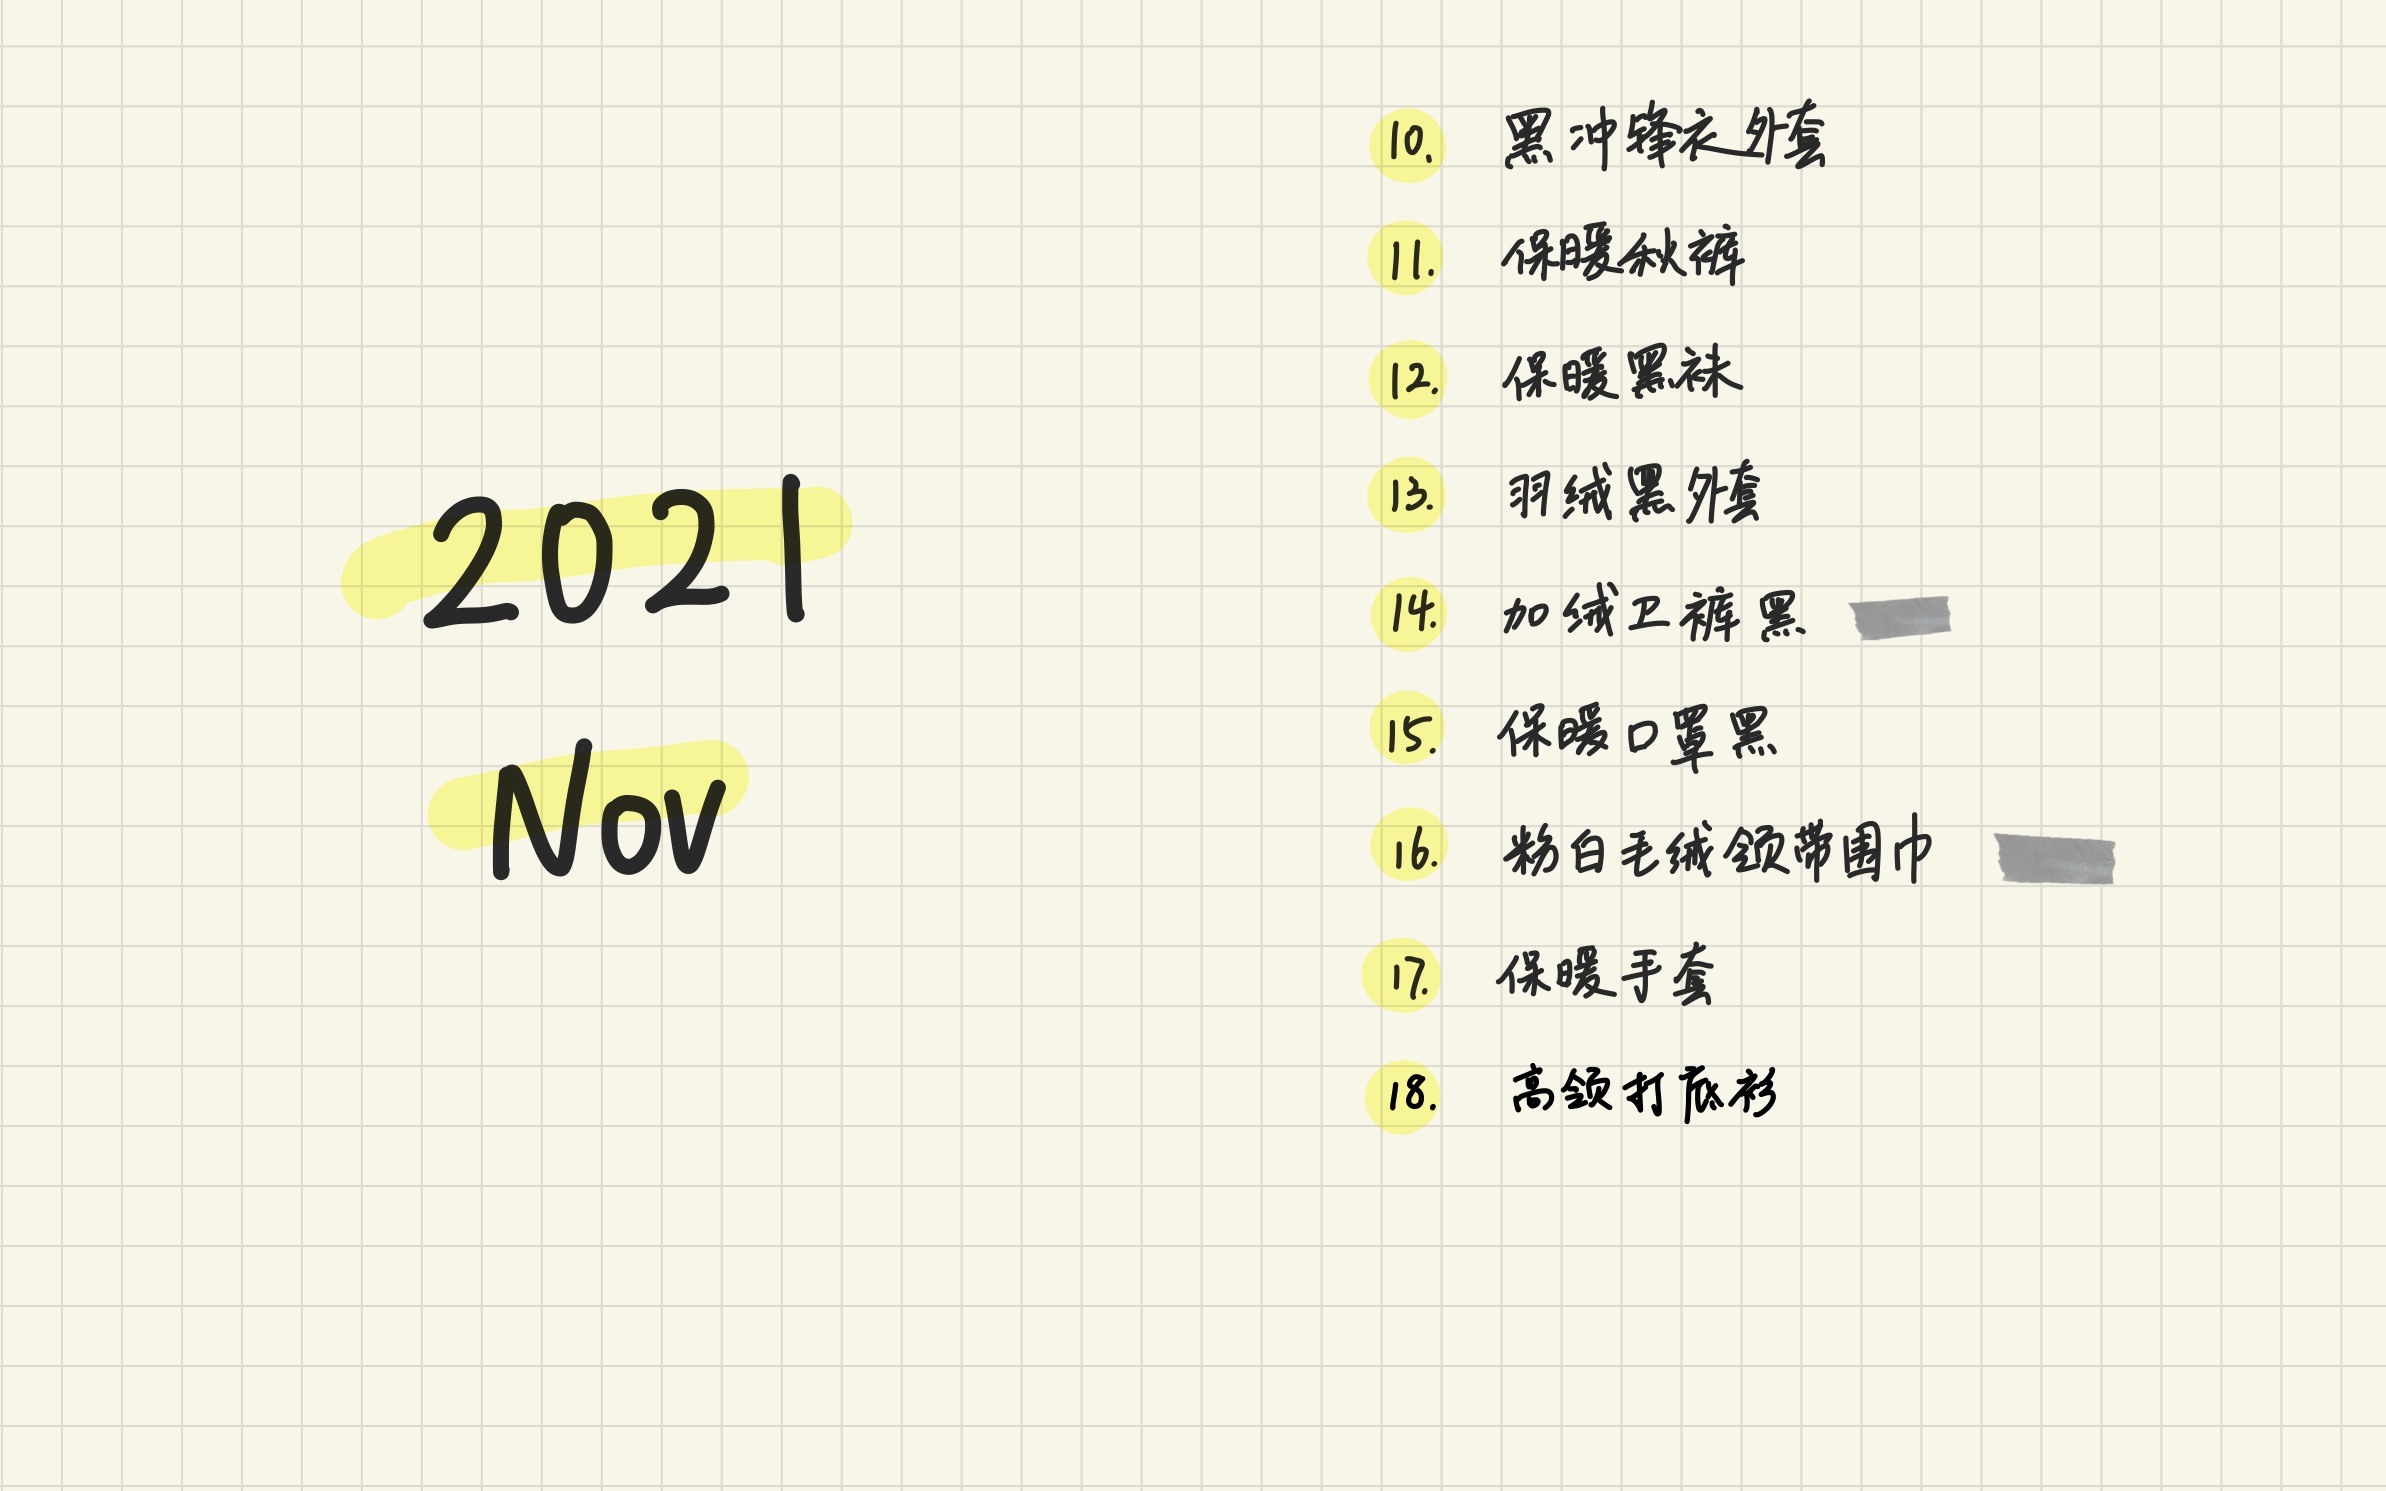 2021
Nov
10. 黑冲锋衣外套
11. 保暖秋裤
12. 保暖黑袜
13. 羽绒黑外套
14. 加绒卫裤黑
15. 保暖口罩黑
16. 粉白毛绒领带围巾
17. 保暖手套
18. 高领打底衫